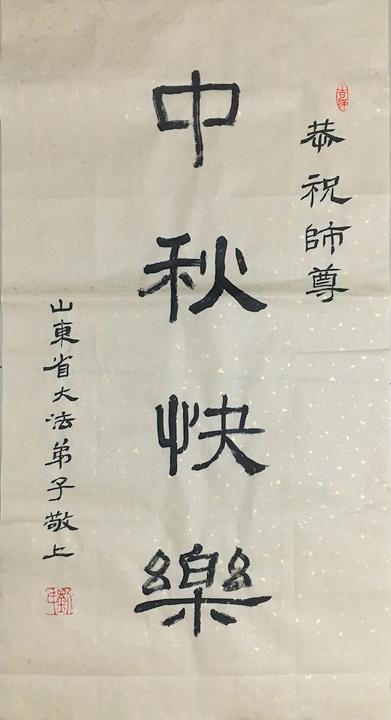 恭祝師尊
中秋快樂
山東省大法弟子敬上